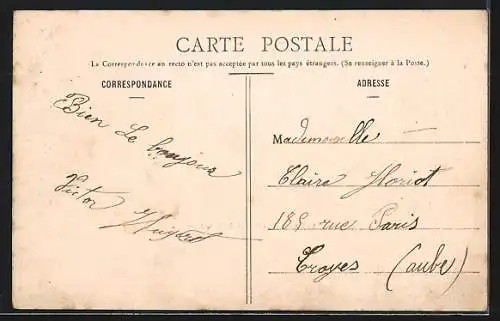 CARTE POSTALE
La Correspondance au recto n'est pas acceptée par tous les pays étrangers. (Se renseigner à la Poste.)
CORRESPONDANCE
Bien Le bonjour
Victor
ADRESSE
Mademoiselle
Claire Floriot
185 rue Paris
Troyes (aube)